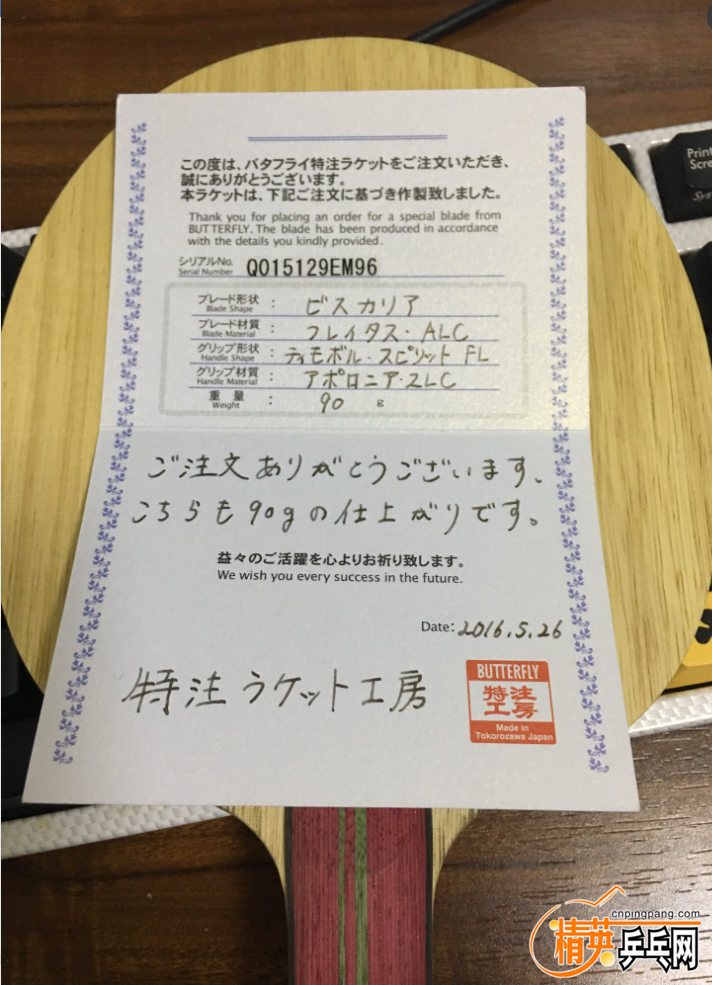 この度は、バタフライ特注ラケットをご注文いただき、
誠にありがとうございます。
本ラケットは、下記ご注文に基づき作製致しました。
Thank you for placing an order for a special blade from
BUTTERFLY. The blade has been produced in accordance
with the details you kindly provided.
シリアルNo.
Serial Number
Q015129EM96
ブレード形状 : ビスカリア
Blade Shape
ブレード材質 : フレイタス・ALC
Blade Material
グリップ形状 : ティモボル・スピリット FL
Handle Shape
グリップ材質 : アポロニア・ZLC
Handle Material
重量 : 90 g
Weight
ご注文ありがとうございます、
こちらも90gの仕上がりです。
益々のご活躍を心よりお祈り致します。
We wish you every success in the future.
Date: 2016.5.26
特注ラケット工房
BUTTERFLY
特注
工房
Made in
Tokorozawa Japan
Print
Scre
cnpingpang.com
精英乒乓网